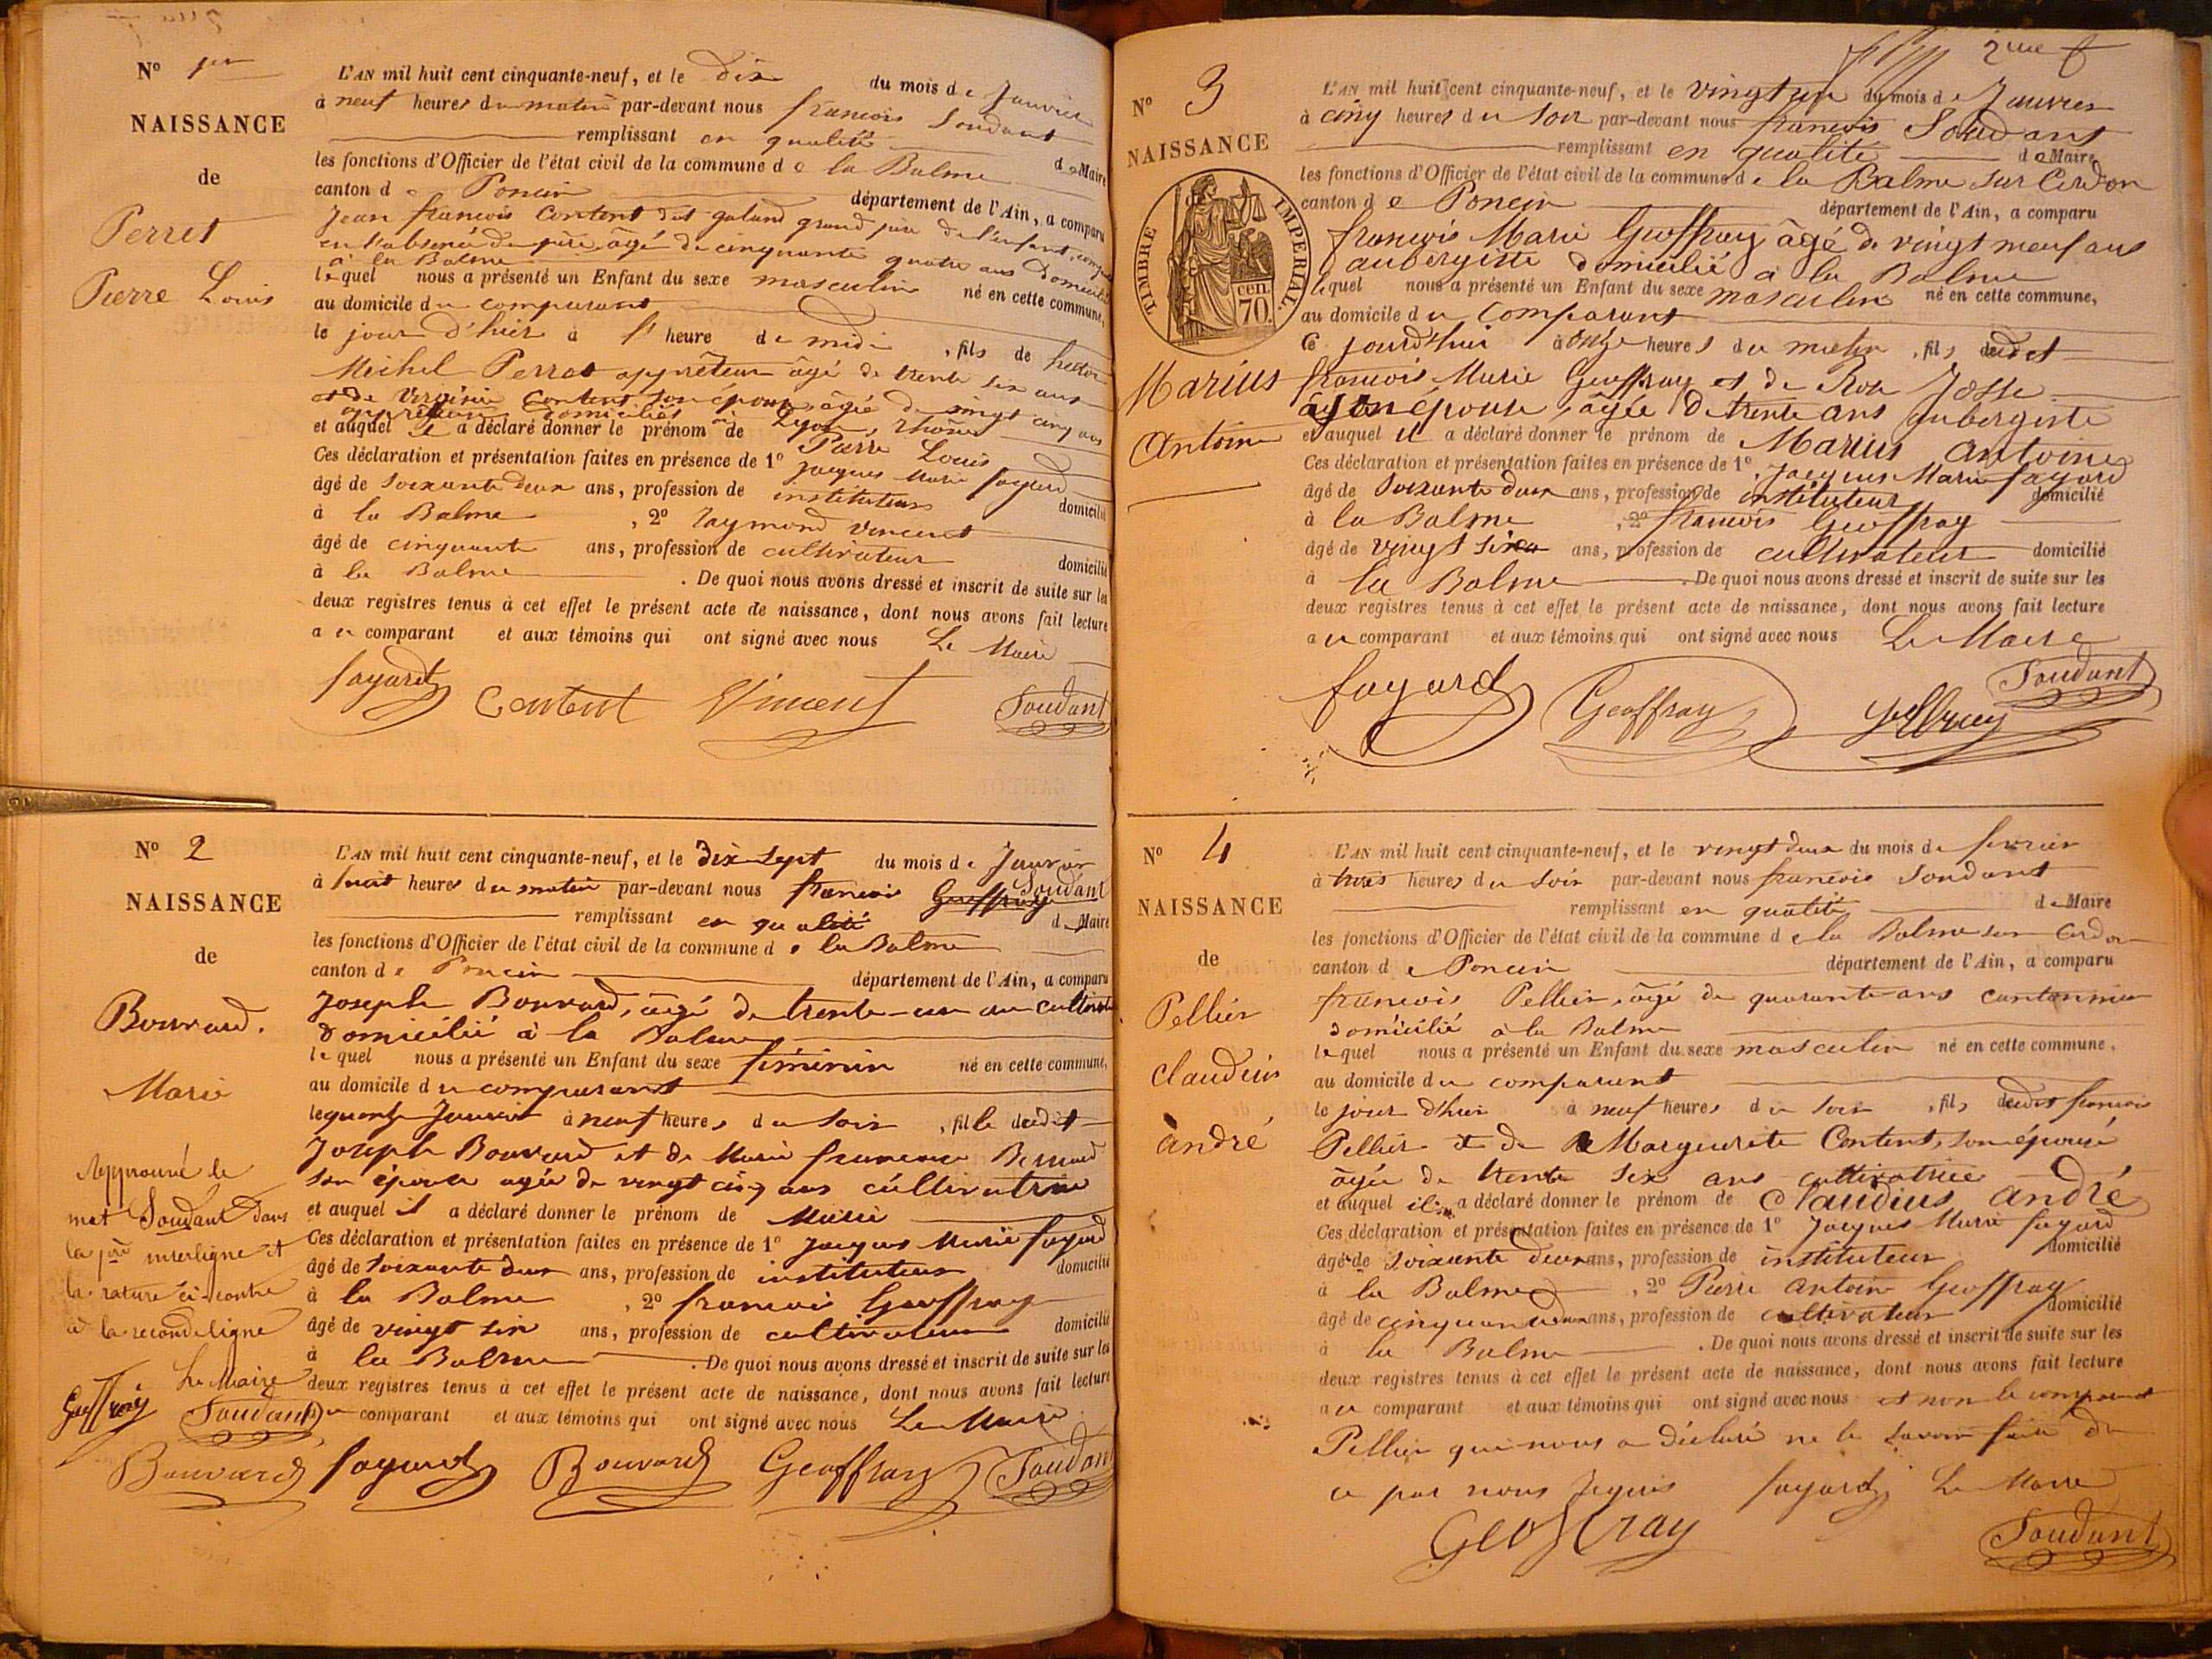 N° 1er
NAISSANCE
de
Perret
Pierre Louis
L'AN mil huit cent cinquante-neuf, et le dix du mois de Janvier
à neuf heures du matin par-devant nous francois Soudant
remplissant en qualité de Maire
les fonctions d'Officier de l'état civil de la commune de la Balme
canton de Poncin département de l'Ain, a comparu
Jean francois Content dit galand grand père de l'enfant,
en l'absence du père, âgé de cinquante quatre ans domicilié
à la Balme
lequel nous a présenté un Enfant du sexe masculin né en cette commune,
au domicile du comparant
le jour d'hier à l' heure de midi, fils de hector
Michel Perret apprêteur âgé de trente six ans
et de Virginie Content son épouse, âgée de vingt cinq ans
domiciliés à Lyon, Rhône
et auquel il a déclaré donner le prénom de Pierre Louis
Ces déclaration et présentation faites en présence de 1° Jacques Marie fayard
âgé de soixante deux ans, profession de instituteur domicilié
à la Balme, 2° Raymond Vincent
âgé de cinquante ans, profession de cultivateur domicilié
à la Balme. De quoi nous avons dressé et inscrit de suite sur les
deux registres tenus à cet effet le présent acte de naissance, dont nous avons fait lecture
au comparant et aux témoins qui ont signé avec nous Le Maire
fayard Content Vincent Soudant
N° 2
NAISSANCE
de
Bouvard.
Marie
Approuvé le
mot Soudant dans
la 1ère interligne et
la rature ci-contre
à la seconde ligne
Le Maire
Geoffray Soudant
L'AN mil huit cent cinquante-neuf, et le dix sept du mois de Janvier
à huit heures du matin par-devant nous francois Geoffray Soudant
remplissant en qualité de Maire
les fonctions d'Officier de l'état civil de la commune de la Balme
canton de Poncin département de l'Ain, a comparu
Joseph Bouvard, âgé de trente-un an cultivateur
domicilié à la Balme
lequel nous a présenté un Enfant du sexe féminin né en cette commune,
au domicile du comparant
le quinze Janvier à neuf heures du soir, fille dudit
Joseph Bouvard et de Marie francoise Bernard
son épouse agée de vingt cinq ans cultivatrice
et auquel il a déclaré donner le prénom de Marie
Ces déclaration et présentation faites en présence de 1° Jacques Marie fayard
âgé de soixante deux ans, profession de instituteur domicilié
à la Balme, 2° francois Geoffray
âgé de vingt six ans, profession de cultivateur domicilié
à la Balme. De quoi nous avons dressé et inscrit de suite sur les
deux registres tenus à cet effet le présent acte de naissance, dont nous avons fait lecture
au comparant et aux témoins qui ont signé avec nous Le Maire
Bouvard fayard Bouvard Geoffray Soudant
2me f
N° 3
NAISSANCE
TIMBRE IMPERIAL.
cen. 70.
Marius
Antoine
L'AN mil huit cent cinquante-neuf, et le vingt un du mois de Janvier
à cinq heures du soir par-devant nous francois Soudant
remplissant en qualité de Maire
les fonctions d'Officier de l'état civil de la commune de la Balme sur Cerdon
canton de Poncin département de l'Ain, a comparu
francois Marie Geoffray âgé de vingt neuf ans
aubergiste domicilié à la Balme
lequel nous a présenté un Enfant du sexe masculin né en cette commune,
au domicile du comparant
Ce jourd'hui à onze heures du matin, fils dudit
francois Marie Geoffray et de Rose Josse
son épouse, âgée de trente ans aubergiste
et auquel il a déclaré donner le prénom de Marius Antoine
Ces déclaration et présentation faites en présence de 1° Jacques Marie fayard
âgé de soixante deux ans, profession de instituteur domicilié
à la Balme, 2° francois Geoffray
âgé de vingt six ans, profession de cultivateur domicilié
à la Balme. De quoi nous avons dressé et inscrit de suite sur les
deux registres tenus à cet effet le présent acte de naissance, dont nous avons fait lecture
au comparant et aux témoins qui ont signé avec nous Le Maire
fayard Geoffray Geoffray Soudant
N° 4
NAISSANCE
de
Pellier
Claudius
André
L'AN mil huit cent cinquante-neuf, et le vingt deux du mois de fevrier
à trois heures du soir par-devant nous francois Soudant
remplissant en qualité de Maire
les fonctions d'Officier de l'état civil de la commune de la Balme sur Cerdon
canton de Poncin département de l'Ain, a comparu
francois Pellier, âgé de quarante ans cantonnier
domicilié à la Balme
lequel nous a présenté un Enfant du sexe masculin né en cette commune,
au domicile du comparant
le jour d'hier à neuf heures du soir, fils dudit francois
Pellier et de Margeurite Content, son épouse
âgée de trente six ans cultivatrice
et auquel il a déclaré donner le prénom de Claudius André
Ces déclaration et présentation faites en présence de 1° Jacques Marie fayard
âgé de soixante deux ans, profession de instituteur domicilié
à la Balme, 2° Pierre Antoine Geoffray
âgé de cinquante deux ans, profession de cultivateur domicilié
à la Balme. De quoi nous avons dressé et inscrit de suite sur les
deux registres tenus à cet effet le présent acte de naissance, dont nous avons fait lecture
au comparant et aux témoins qui ont signé avec nous et non le comparant
Pellier qui nous a déclaré ne le savoir faire de
ce par nous requis fayard Le Maire
Geoffray Soudant